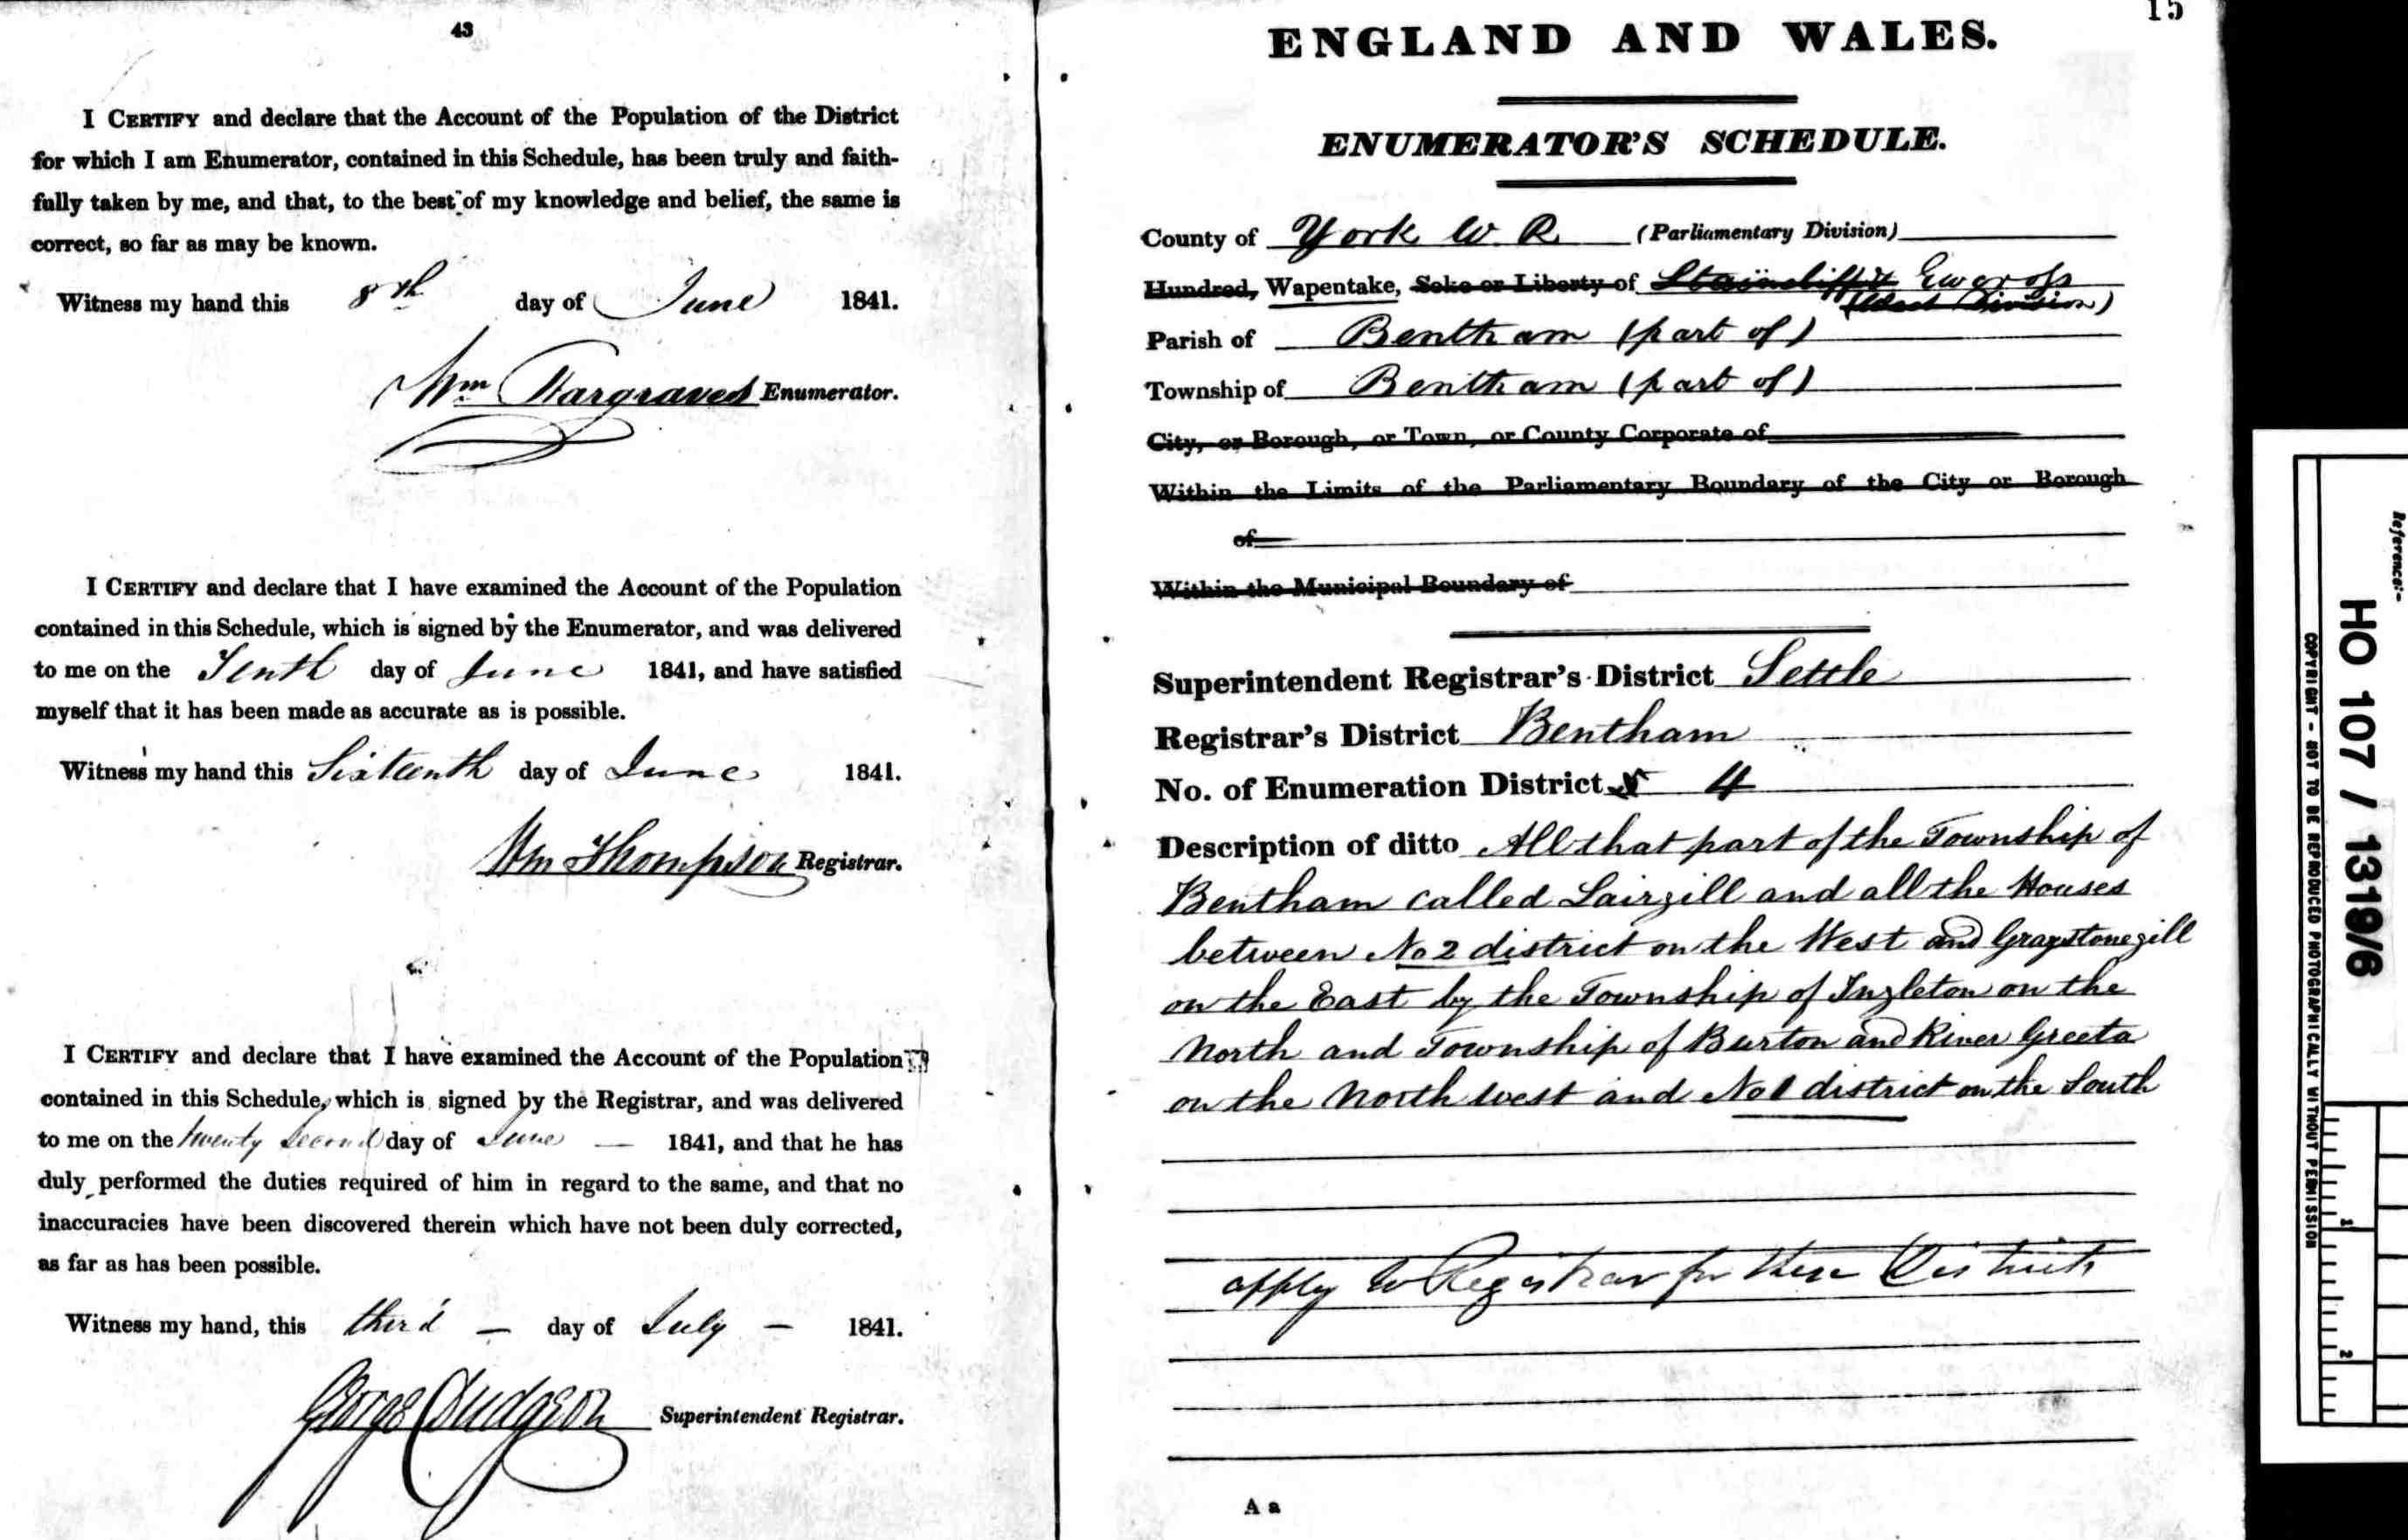 43
I CERTIFY and declare that the Account of the Population of the District
for which I am Enumerator, contained in this Schedule, has been truly and faith-
fully taken by me, and that, to the best of my knowledge and belief, the same is
correct, so far as may be known.
Witness my hand this 8th day of June 1841.
Wm Hargraves Enumerator.
I CERTIFY and declare that I have examined the Account of the Population
contained in this Schedule, which is signed by the Enumerator, and was delivered
to me on the Tenth day of June 1841, and have satisfied
myself that it has been made as accurate as is possible.
Witness my hand this Sixteenth day of June 1841.
Wm Thompson Registrar.
I CERTIFY and declare that I have examined the Account of the Population
contained in this Schedule, which is signed by the Registrar, and was delivered
to me on the twenty second day of June — 1841, and that he has
duly performed the duties required of him in regard to the same, and that no
inaccuracies have been discovered therein which have not been duly corrected,
as far as has been possible.
Witness my hand, this third — day of July — 1841.
George Dudgeon Superintendent Registrar.
15
ENGLAND AND WALES.
ENUMERATOR'S SCHEDULE.
County of York W. R (Parliamentary Division)
Hundred, Wapentake, Soke or Liberty of Staincliffe & Ewcross
(West Division)
Parish of Bentham (part of)
Township of Bentham (part of)
City, or Borough, or Town, or County Corporate of
Within the Limits of the Parliamentary Boundary of the City or Borough
of
Within the Municipal Boundary of
Superintendent Registrar's District Settle
Registrar's District Bentham
No. of Enumeration District 4
Description of ditto All that part of the Township of
Bentham called Lairgill and all the Houses
between No 2 district on the West and Graystonegill
on the East by the Township of Ingleton on the
North and Township of Burton and River Greeta
on the North west and No 1 district on the South
apply to Registrar for these Districts
A a
Reference:-
HO 107 / 1319/6
COPYRIGHT - NOT TO BE REPRODUCED PHOTOGRAPHICALLY WITHOUT PERMISSION
1
2